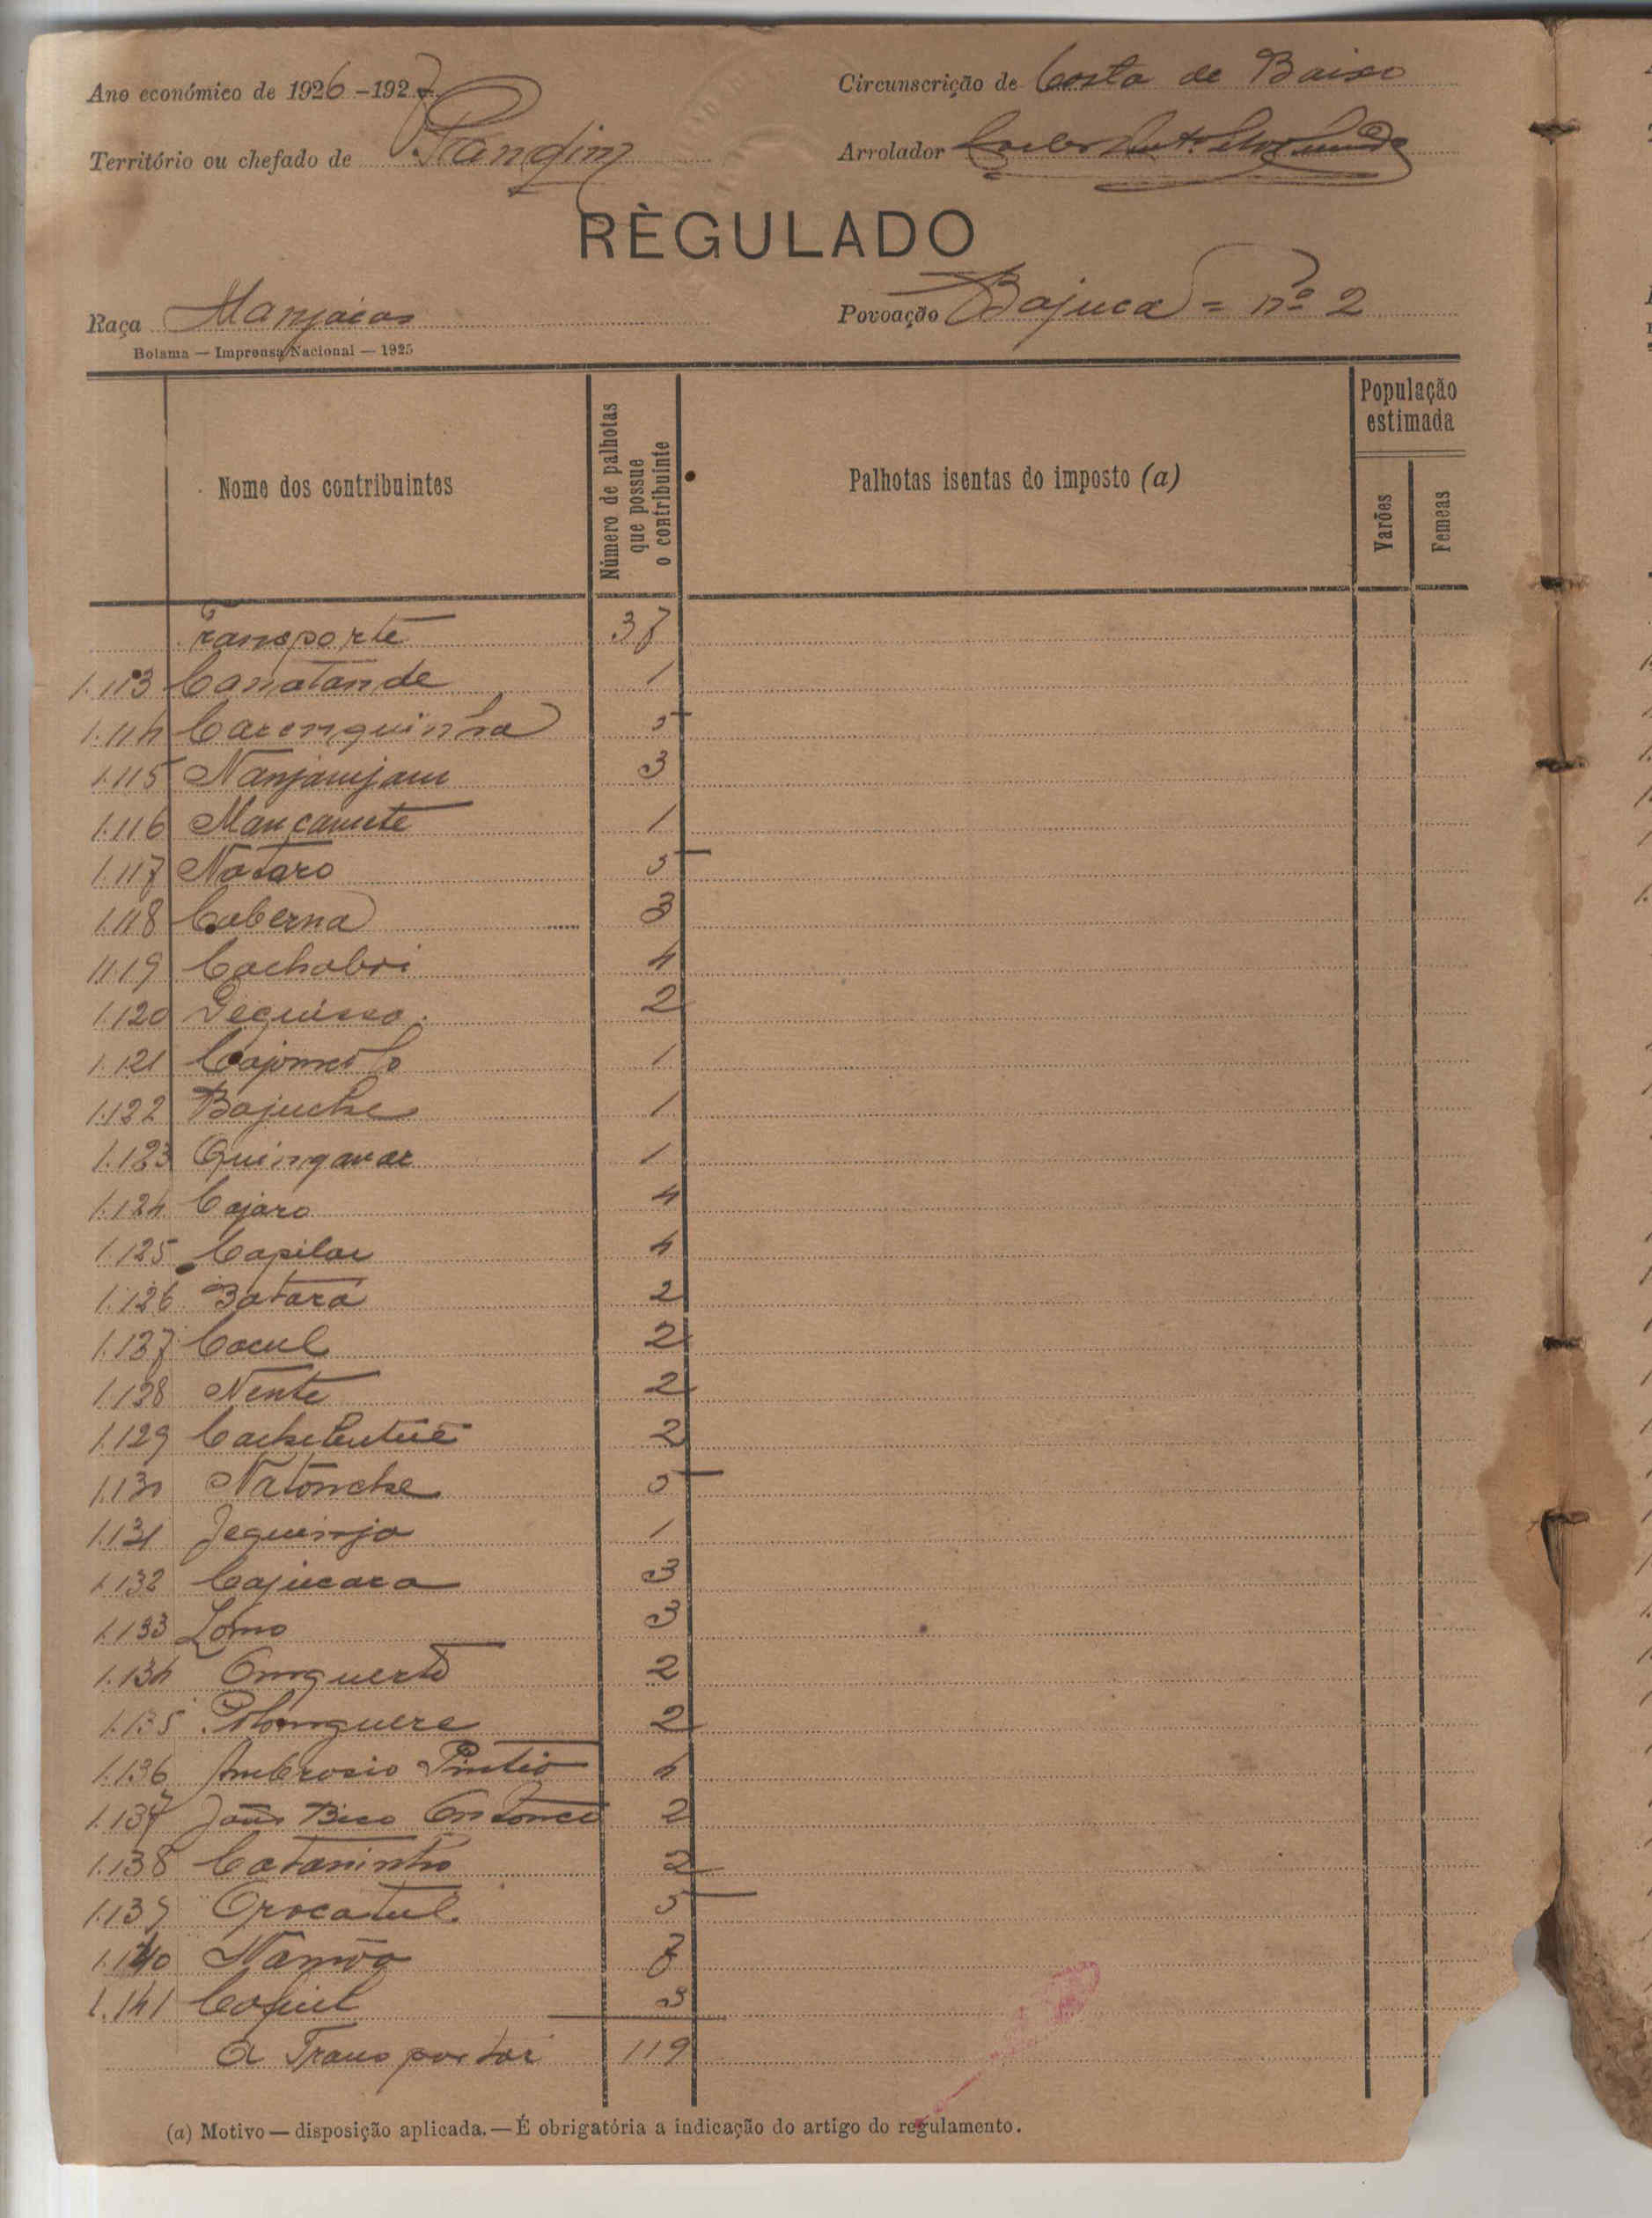 Ano económico de 1926-1927
Circunscrição de Costa de Baixo
Território ou chefado de Pandim
Arrolador
RÈGULADO
Raça Manjacos
Povoação Bajuca = nº 2
Bolama — Imprensa Nacional — 1925
Nome dos contribuintes
Número de palhotas que possue o contribuinte
Palhotas isentas do imposto (a)
População estimada
Varões
Femeas
Transporte 37
1.113 Canatande 1
1.114 Carenquinha 5
1.115 Nanjamjam 3
1.116 Mancamute 1
1.117 Nataro 5
1.118 Caberna 3
1.119 Cachobri 4
1.120 2
1.121 1
1.122 Bajuche 1
1.123 Quingavar 1
1.124 Cajaro 4
1.125 Capilar 4
1.126 Batara 2
1.127 Cacul 2
1.128 Nente 2
1.129 2
1.130 Natonche 5
1.131 Jequinjo 1
1.132 Cajucara 3
1.133 Lomo 3
1.134 2
1.135 2
1.136 Ambrosio Pintio 4
1.137 João Bico 2
1.138 Cataninho 2
1.139 Orocatul 5
1.140 Namôa 7
1.141 Cafiul 3
A Transportar 119
(a) Motivo — disposição aplicada. — É obrigatória a indicação do artigo do regulamento.